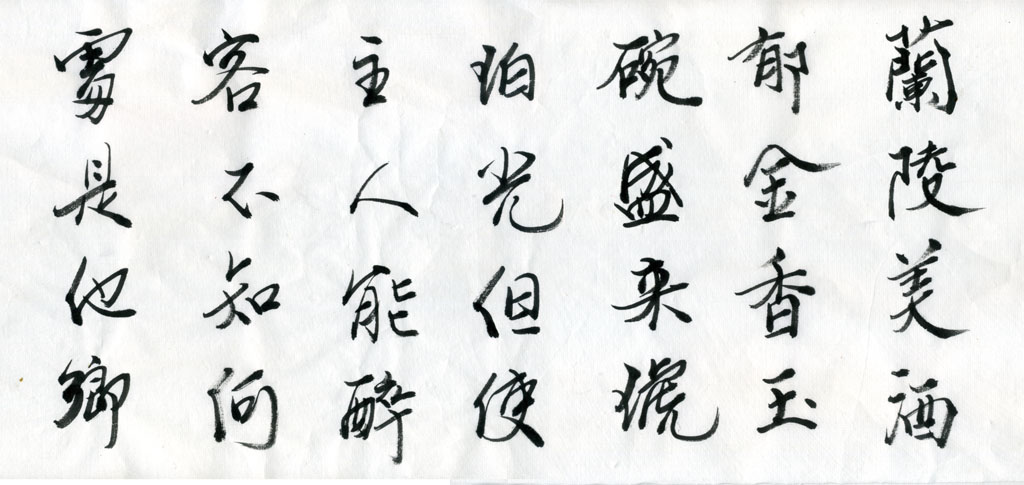 蘭陵美酒
郁金香玉
碗盛来琥
珀光但使
主人能醉
客不知何
處是他鄉